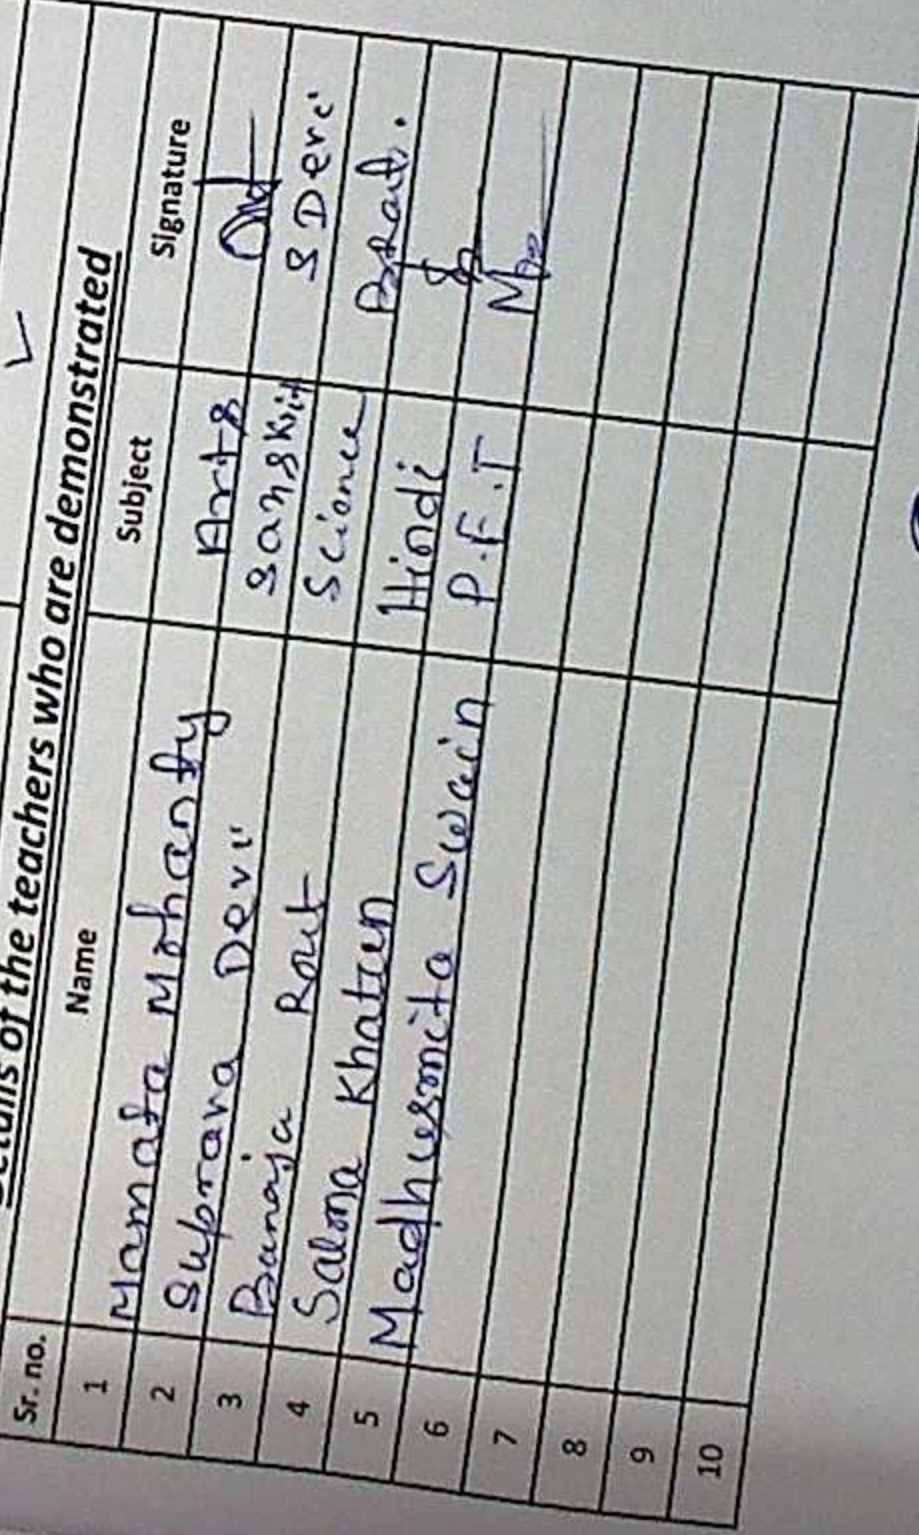 Details of the teachers who are demonstrated
Sr. no. Name Subject Signature
1 Mamata Mohanty Arts
2 Suprava Devi Sanskrit S Devi
3 Banaja Rout Science BRout.
4 Salma Khatun Hindi
5 Madhusmita Swain P.E.T
6
7
8
9
10